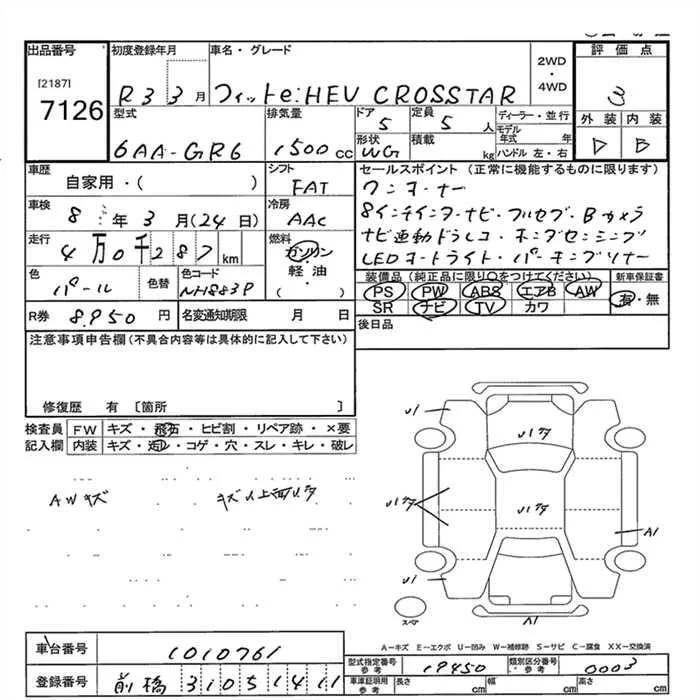 出品番号 初度登録年月 車名・グレード 評価点
[2187] 2WD・4WD
7126 R3 3月 フィットe:HEV CROSSTAR 3
型式 排気量 ドア 定員 ディーラー・並行 外装 内装
6AA-GR6 1500cc 5 5人 モデル年式 年
形状 積載 D B
WG kg ハンドル 左・右
車歴 シフト セールスポイント (正常に機能するものに限ります)
自家用・( ) FAT ワンオーナー
車検 冷房 8インチインターナビ・フルセグ・Bカメラ
8年3月(24日) AAC ナビ連動ドラレコ・ホンダセンシング
走行 燃料 LEDオートライト・パーキングソナー
4万0千287km ガソリン・軽油・( )
色 色替 色コード 装備品 (純正品に限り○をつけてください) 新車保証書
パール NH883P PS PW ABS エアB AW 有・無
SR ナビ TV カワ
R券 8,950円 名変通知期限 月 日 後日品
注意事項申告欄(不具合内容等は具体的に記入して下さい)
修復歴 有 〔箇所 〕
検査員 FW キズ・飛石・ヒビ割・リペア跡・×要
記入欄 内装 キズ・汚レ・コゲ・穴・スレ・キレ・破レ
AWキズ
U1
A1
U1
スペア
A1
A-キズ E-エクボ U-凹み W-補修跡 S-サビ C-腐食 XX-交換済
車台番号 1010761
型式指定番号 参考 19450 類別区分番号 参考 0003
登録番号 前橋 310 5 1411
車庫証明用 参考 長さ cm 幅 cm 高さ cm